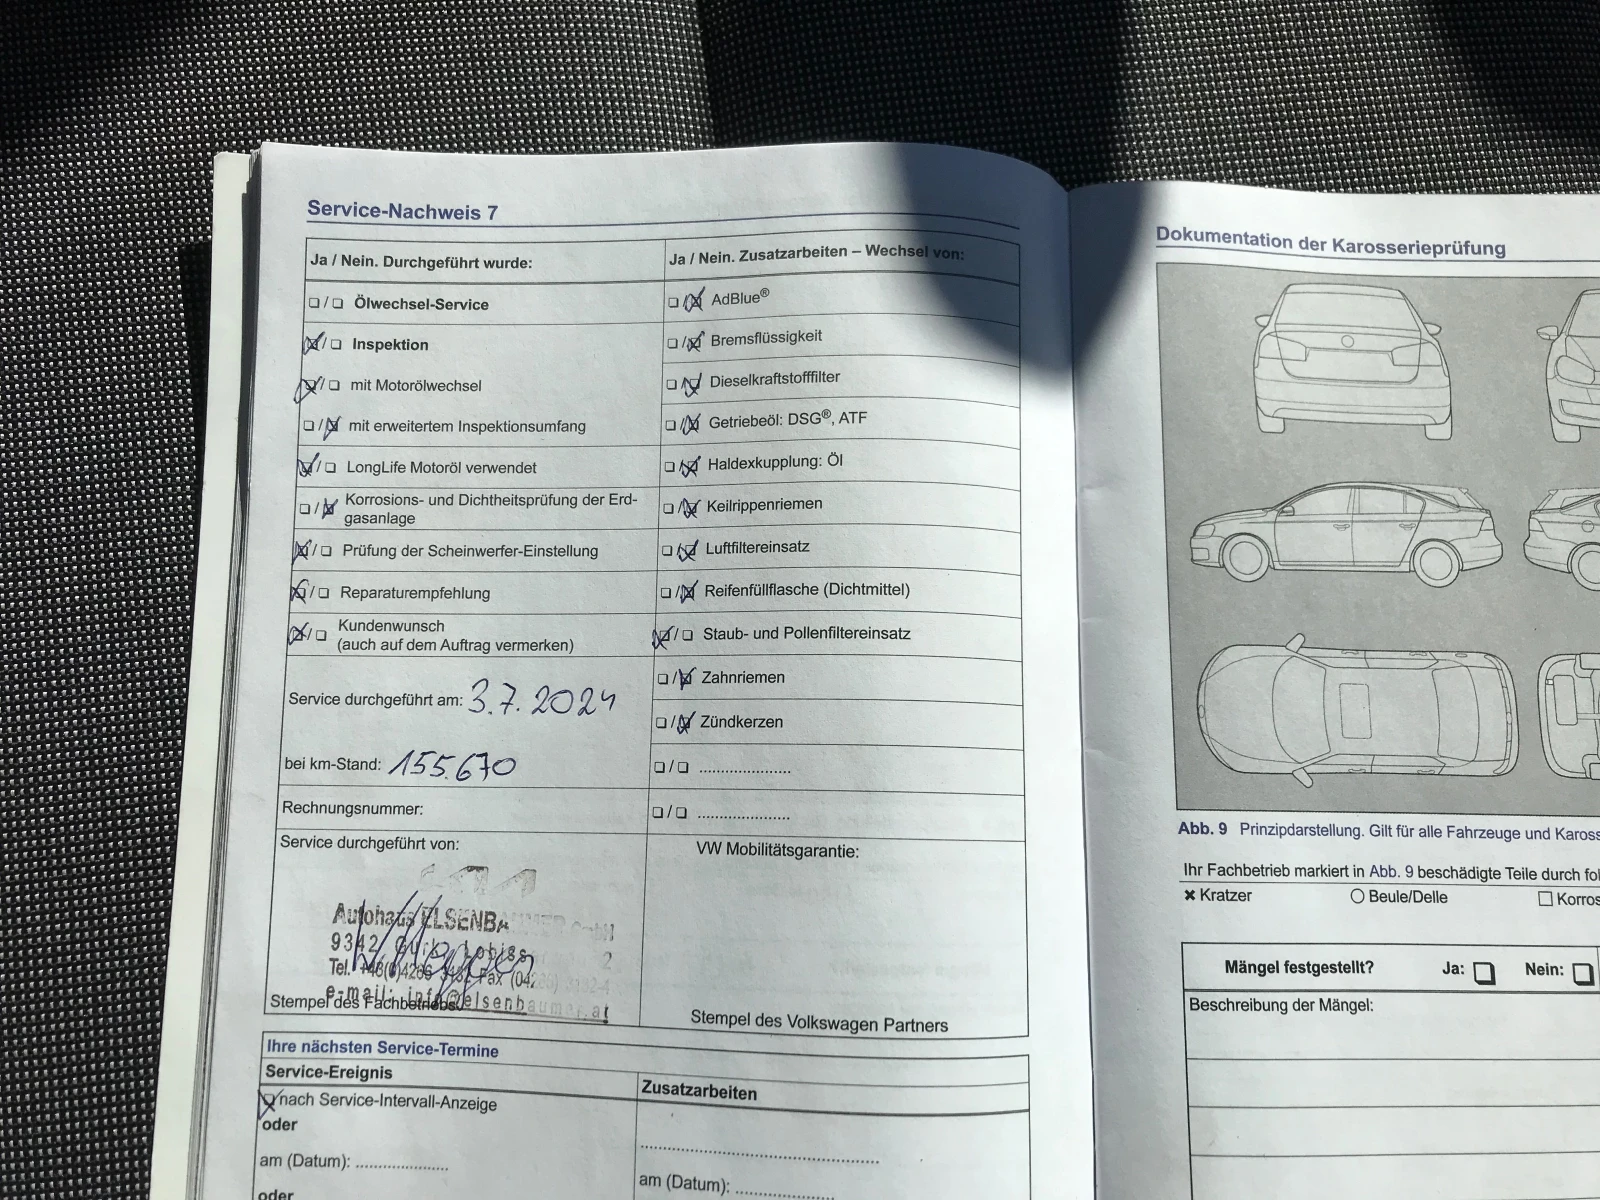 Service-Nachweis 7
Ja / Nein. Durchgeführt wurde:
❏ / ❏ Ölwechsel-Service
☒ / ❏ Inspektion
☒ / ❏ mit Motorölwechsel
❏ / ☒ mit erweitertem Inspektionsumfang
☒ / ❏ LongLife Motoröl verwendet
❏ / ☒ Korrosions- und Dichtheitsprüfung der Erd-
gasanlage
☒ / ❏ Prüfung der Scheinwerfer-Einstellung
☒ / ❏ Reparaturempfehlung
☒ / ❏ Kundenwunsch
(auch auf dem Auftrag vermerken)
Service durchgeführt am: 3.7.2024
bei km-Stand: 155.670
Rechnungsnummer:
Service durchgeführt von:
Autohaus ELSENBA
9342
Tel.
e-mail: info@elsenbaumer.at
Stempel des Fachbetriebs
Ja / Nein. Zusatzarbeiten – Wechsel von:
❏ / ☒ AdBlue®
❏ / ☒ Bremsflüssigkeit
❏ / ☒ Dieselkraftstofffilter
❏ / ☒ Getriebeöl: DSG®, ATF
❏ / ☒ Haldexkupplung: Öl
❏ / ☒ Keilrippenriemen
❏ / ☒ Luftfiltereinsatz
❏ / ☒ Reifenfüllflasche (Dichtmittel)
☒ / ❏ Staub- und Pollenfiltereinsatz
❏ / ☒ Zahnriemen
❏ / ☒ Zündkerzen
❏ / ❏ ......................
❏ / ❏ ......................
VW Mobilitätsgarantie:
Stempel des Volkswagen Partners
Ihre nächsten Service-Termine
Service-Ereignis
☒ nach Service-Intervall-Anzeige
oder
am (Datum): ......................
oder
Zusatzarbeiten
......................
am (Datum): ......................
Dokumentation der Karosserieprüfung
Abb. 9 Prinzipdarstellung. Gilt für alle Fahrzeuge und Kaross
Ihr Fachbetrieb markiert in Abb. 9 beschädigte Teile durch fol
✖ Kratzer
○ Beule/Delle
□ Korros
Mängel festgestellt? Ja: ❏ Nein: ❏
Beschreibung der Mängel: